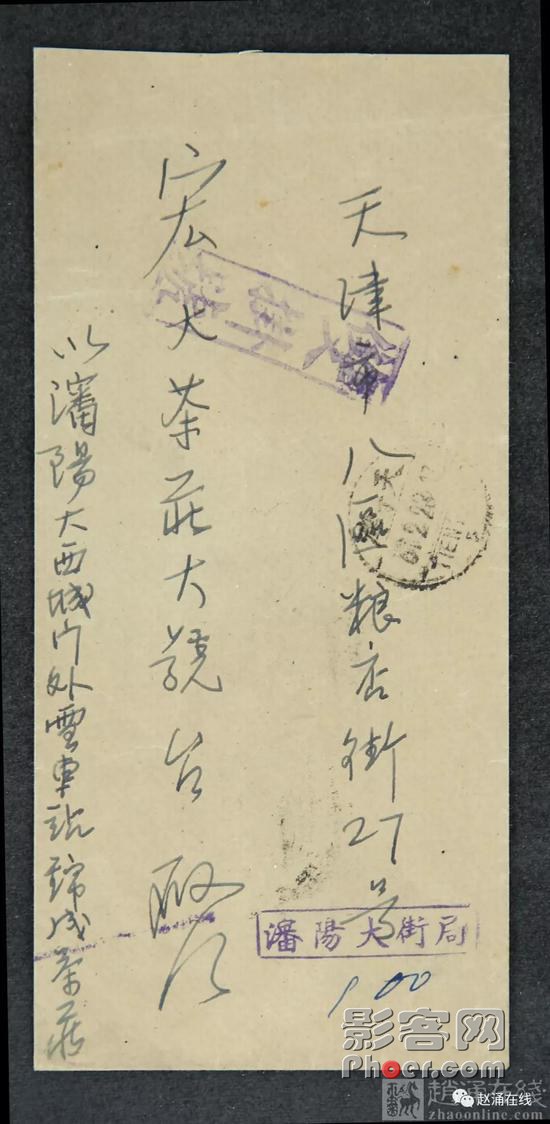 天津市八區粮店街27号
宏大茶莊大號台啟
瀋陽大西城门外電車站錦成茶莊
掛
瀋陽大街局
天
TIENT
100
影客网
Phoer.com
趙涌在线
zhaoonline.com
赵涌在线